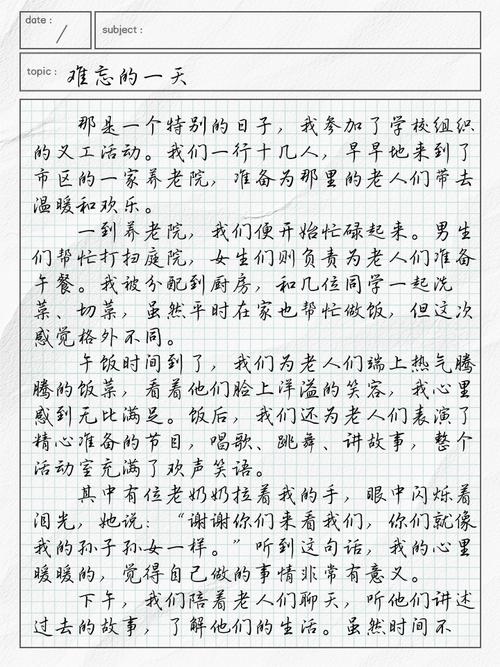 date :
/
subject :
topic : 难忘的一天
那是一个特别的日子，我参加了学校组织
的义工活动。我们一行十几人，早早地来到了
市区的一家养老院，准备为那里的老人们带去
温暖和欢乐。
一到养老院，我们便开始忙碌起来。男生
们帮忙打扫庭院，女生们则负责为老人们准备
午餐。我被分配到厨房，和几位同学一起洗
菜、切菜，虽然平时在家也帮忙做饭，但这次
感觉格外不同。
午饭时间到了，我们为老人们端上热气腾
腾的饭菜，看着他们脸上洋溢的笑容，我心里
感到无比满足。饭后，我们还为老人们表演了
精心准备的节目，唱歌、跳舞、讲故事，整个
活动室充满了欢声笑语。
其中有位老奶奶拉着我的手，眼中闪烁着
泪光，她说：“谢谢你们来看我们，你们就像
我的孙子孙女一样。”听到这句话，我的心里
暖暖的，觉得自己做的事情非常有意义。
下午，我们陪着老人们聊天，听他们讲述
过去的故事，了解他们的生活。虽然时间不